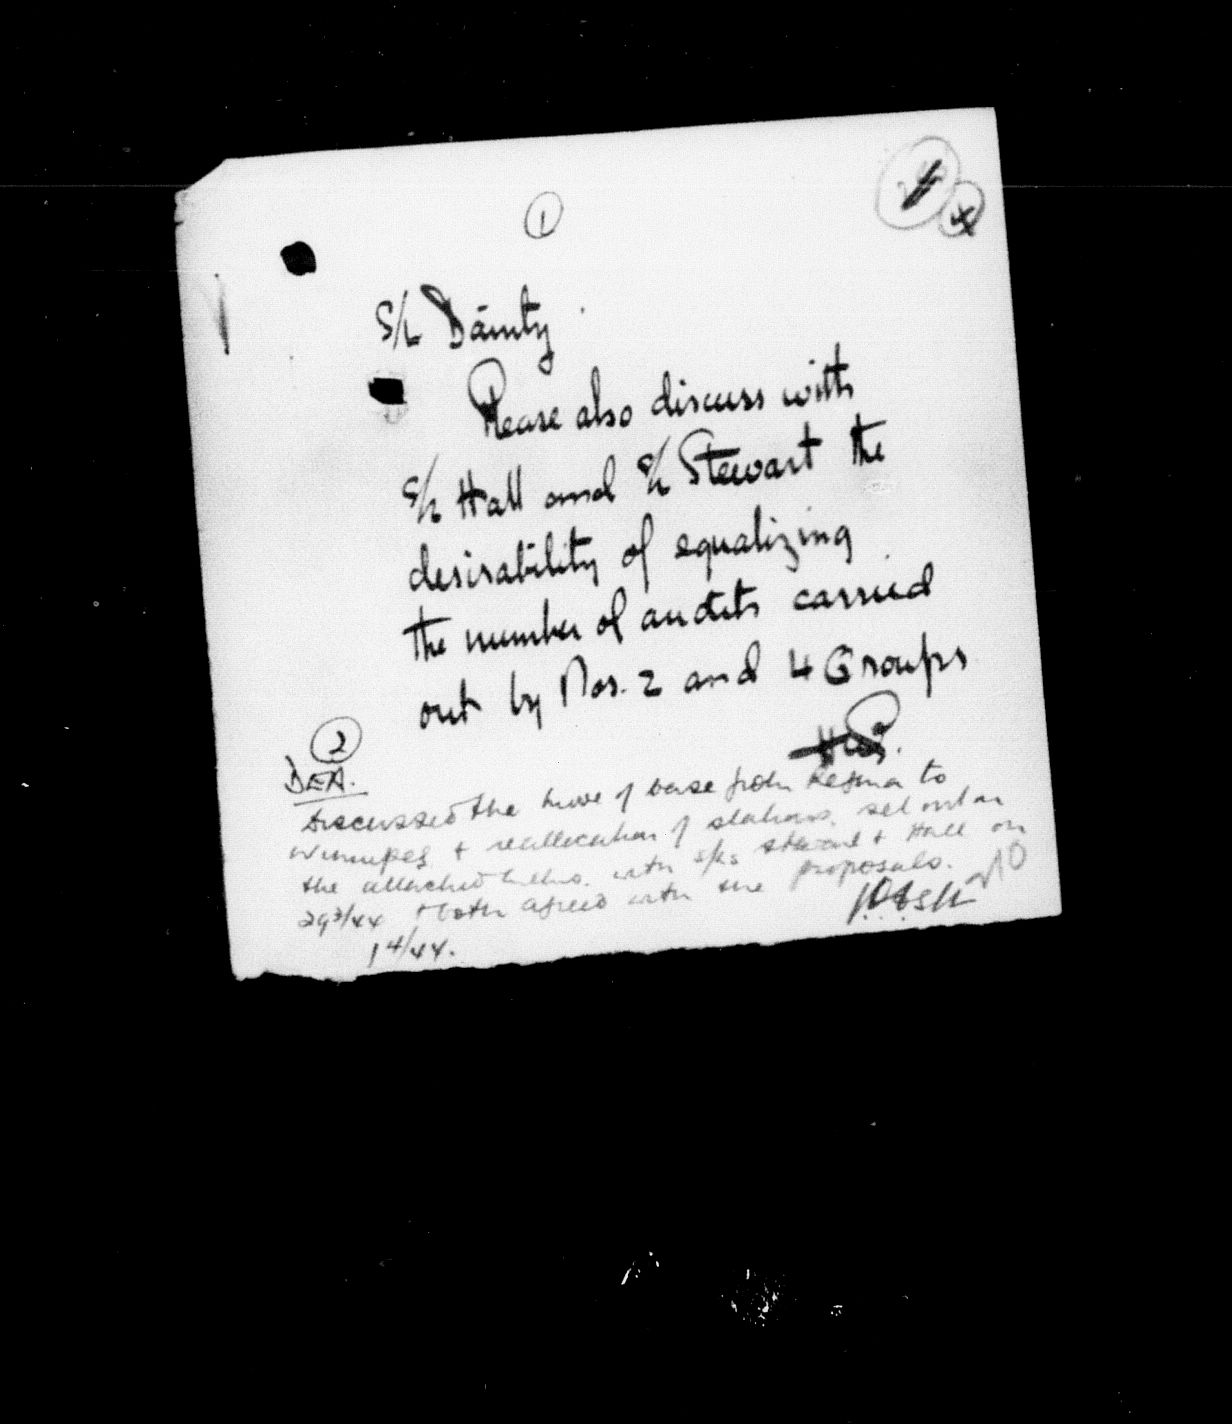 1
S/L Dainty
Please also discuss with
S/L Hall and S/L Stewart the
desirability of equalizing
the number of audits carried
out by Nos. 2 and 4 Groups
2
DEA.
Discussed the move of base from Regina to
Winnipeg + reallocation of stations, set out in
the attached with S/Ls Stewart + Hall on
29 3/44 + both agreed with the proposals.
1 4/44.